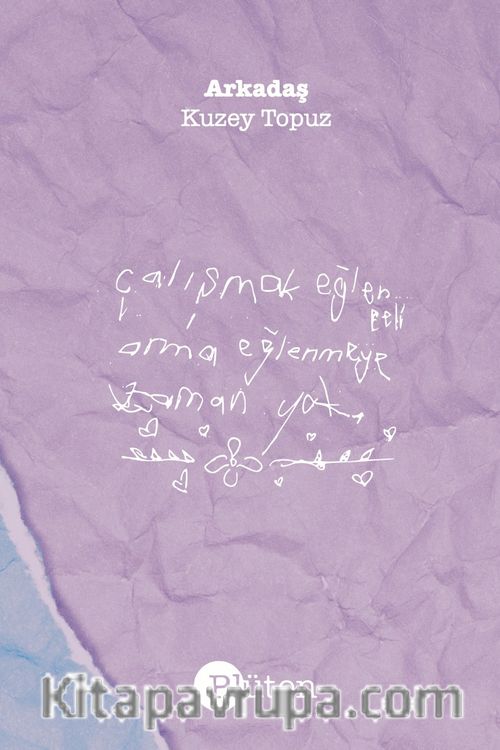 Arkadaş
Kuzey Topuz
çalışmak eğlen...
celi
ama eğlenmeye
zaman yok.
Plüton
Kitapavrupa.com